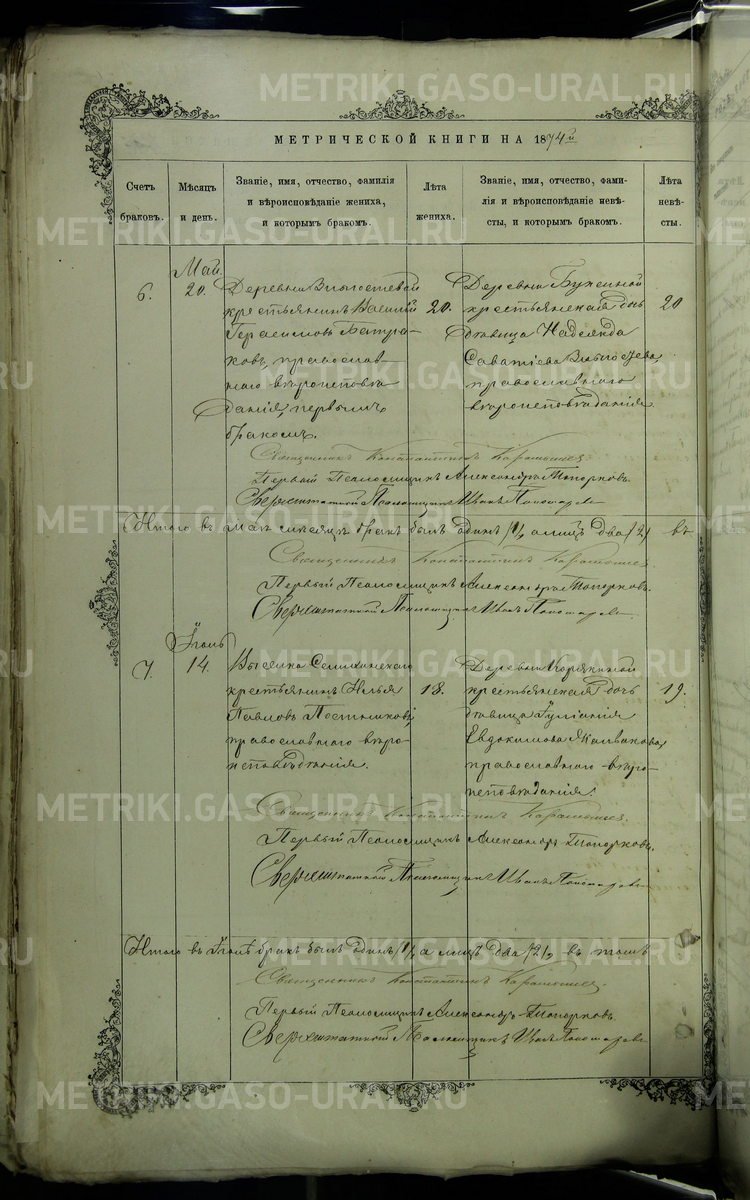 МЕТРИЧЕСКОЙ КНИГИ НА 1874й
Счетъ браковъ.
Мѣсяцъ и день.
Званіе, имя, отчество, фамилія
и вѣроисповѣданіе жениха,
и которымъ бракомъ.
Лѣта жениха.
Званіе, имя, отчество, фами-
лія и вѣроисповѣданіе невѣ-
сты, и которымъ бракомъ.
Лѣта невѣ-
сты.
6.
Май.
20.
Деревни
крестьянинъ Василий
Герасимовъ Батра-
ковъ, православ-
наго вѣроисповѣ
данія, первымъ
бракомъ.
20.
Деревни
крестьянская дочь
дѣвица Надежда
Саватіева
православнаго
вѣроисповѣданія
20
Священникъ Константинъ
Первый Псаломщикъ Александръ Топорковъ.
Сверхштатный Псаломщикъ Иванъ Пономаревъ
Итого въ маѣ месяцѣ бракъ былъ одинъ /1/, а лицъ два /2/ въ
Священникъ Константинъ
Первый Псаломщикъ Александръ Топорковъ.
Сверхштатный Псаломщикъ Иванъ Пономаревъ
7.
Іюль
14.
Выселка
крестьянинъ Илья
Павловъ Постниковъ
православнаго вѣро-
исповѣданія.
18.
Деревни
крестьянская дочь
дѣвица Іуліанія
Евдокимова
православнаго вѣро-
исповѣданія.
19.
Священникъ Константинъ
Первый Псаломщикъ Александръ Топорковъ.
Сверхштатный Псаломщикъ Иванъ Пономаревъ
Итого въ Іюлѣ бракъ былъ одинъ /1/, а лицъ два /2/, въ томъ
Священникъ Константинъ
Первый Псаломщикъ Александръ Топорковъ
Сверхштатный Псаломщикъ Иванъ Пономаревъ
METRIKI.GASO-URAL.RU